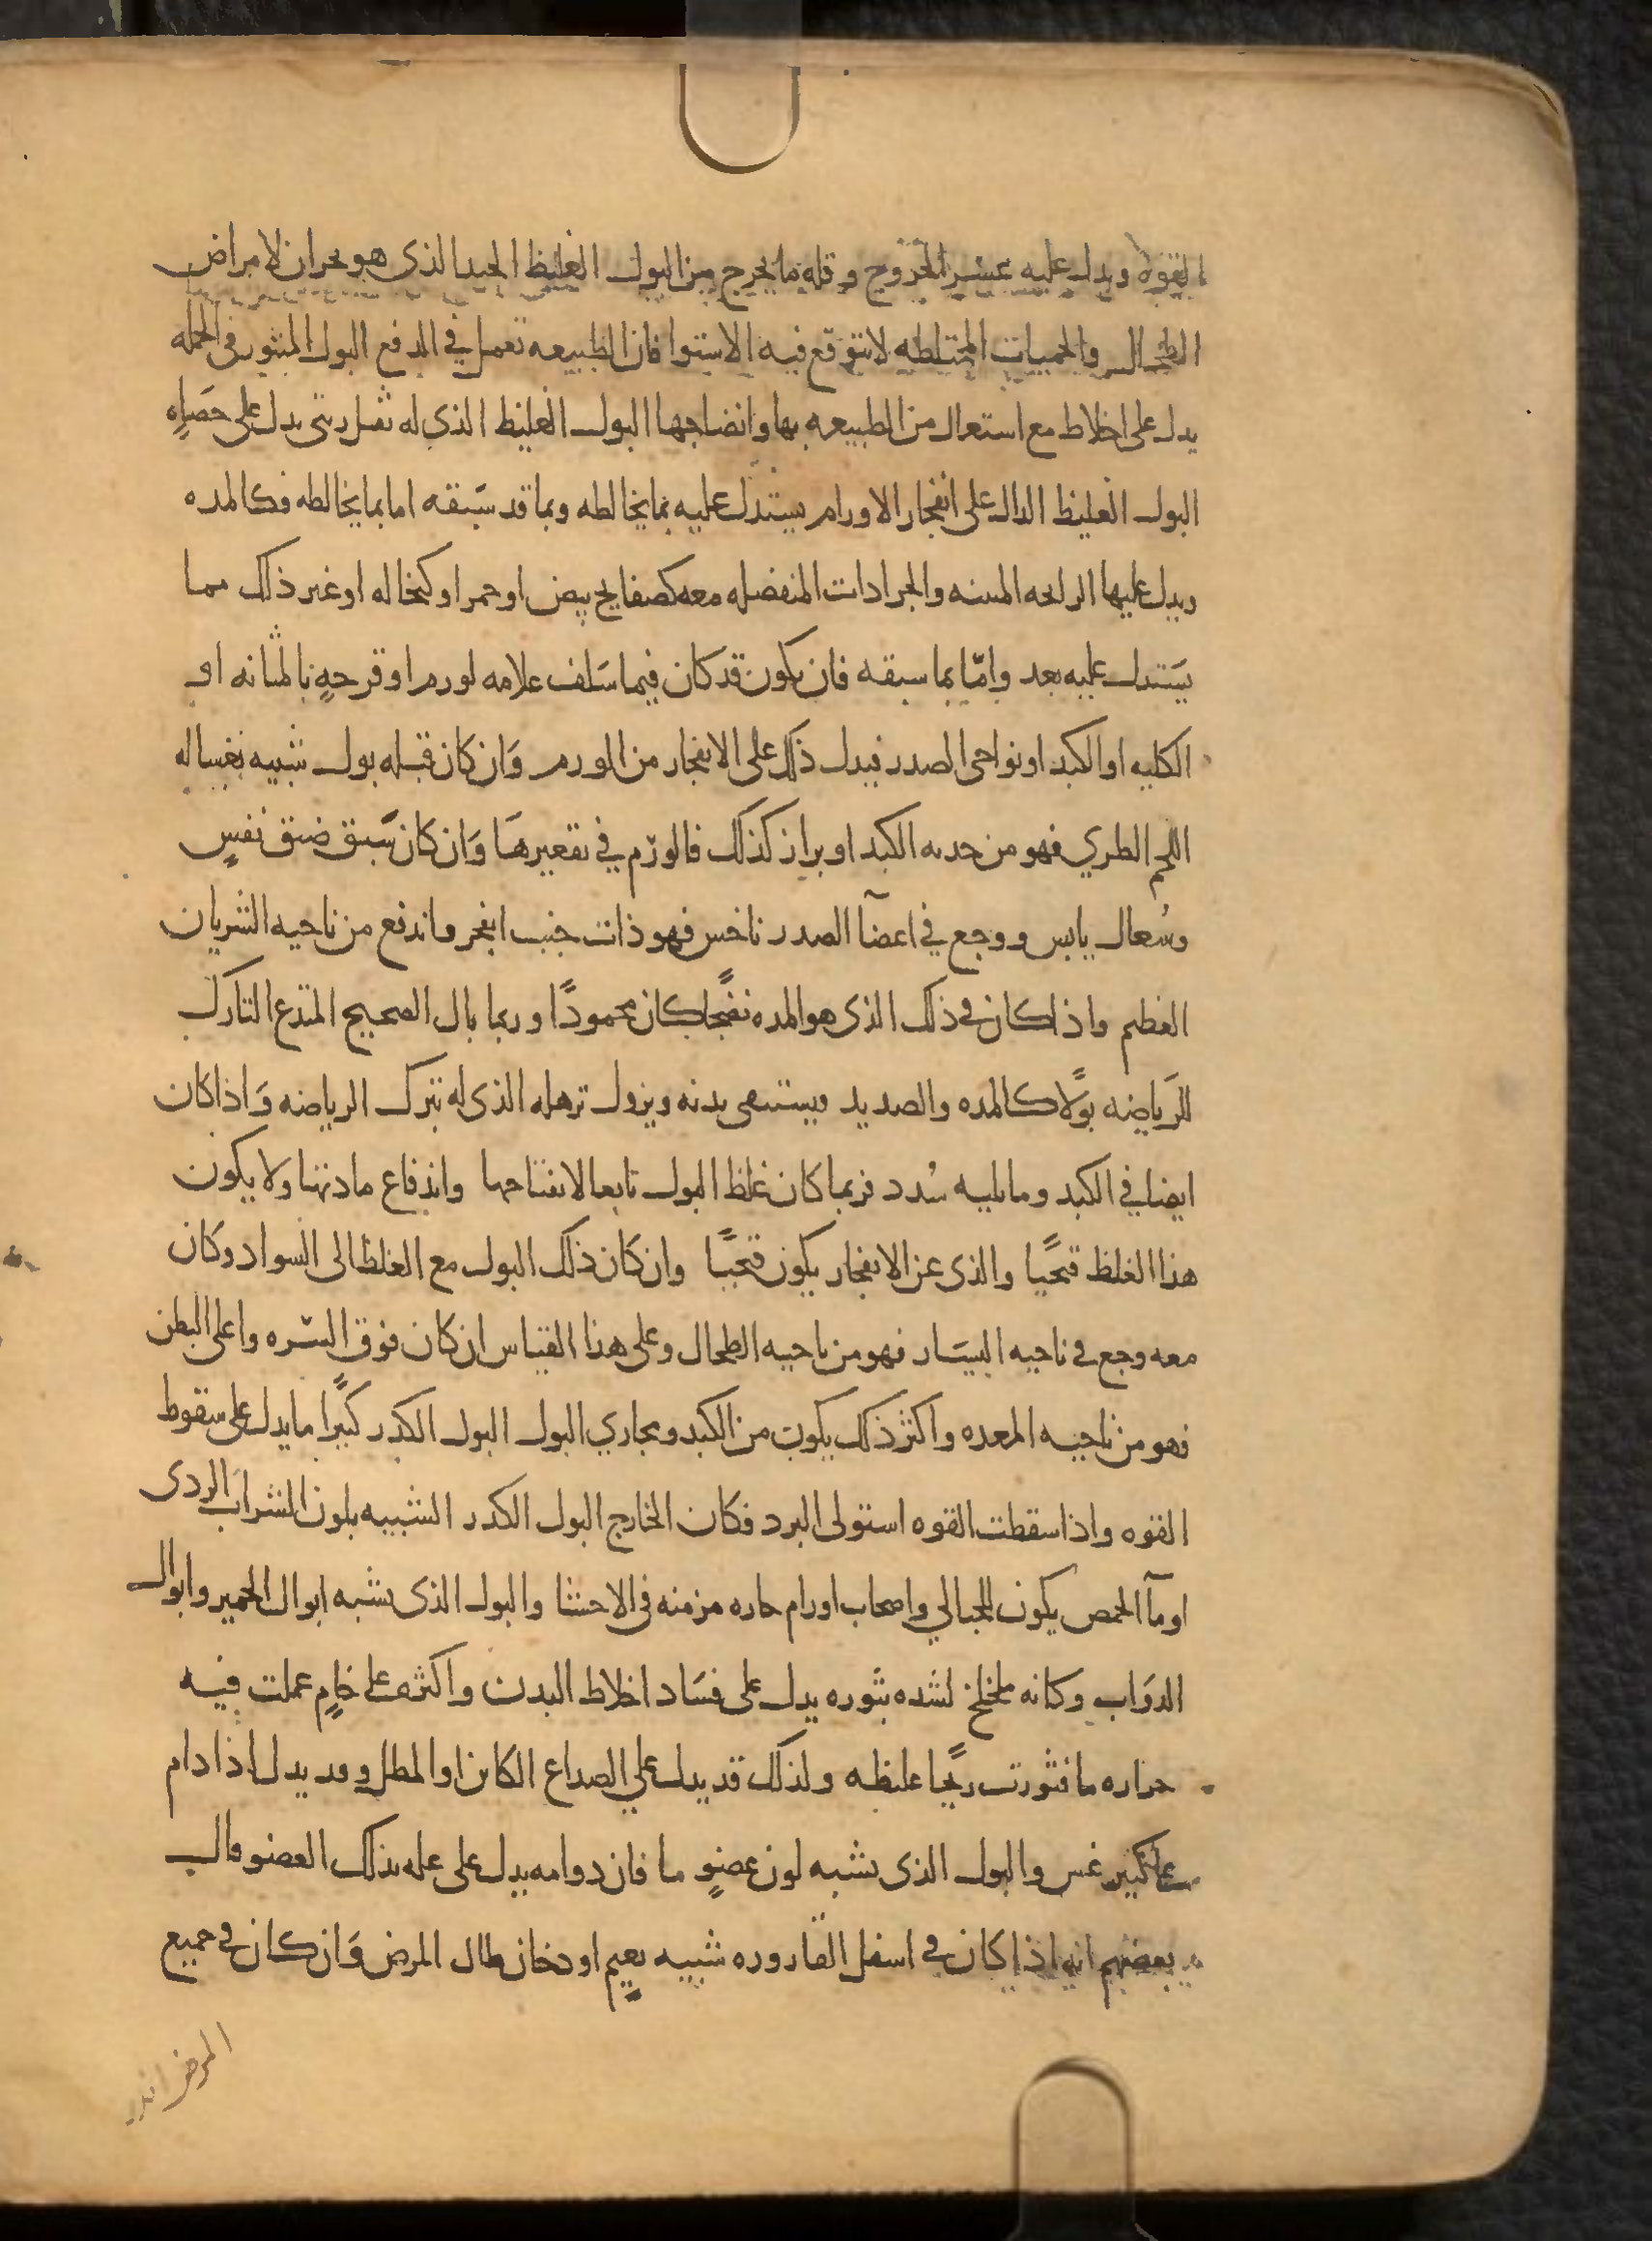 القوه ويدل عليه عسر الخروج وقله ما يخرج من البول الغليظ الجيد الذى هو بحران لامراض
الطحال والحميات المختلطه لا يتوقع فيه الاستوا فان الطبيعه تعمل في الدفع البول المثور في الجمله
يدل على اخلاط مع استعال من الطبيعه بها وانضاجها البول الغليظ الذى له ثفل ريتى يدل على حصاهٍ
البول الغليظ الدال على انفجار الاورام يستدل عليه بما يخالطه وبما قد سبقه اما بما يخالطه فكالمده
ويدل عليها الرايحه المنتنه والجرادات المنفصله معه كصفايح بيض او حمر او كنخاله او غير ذلك مما
يستدل عليه بعد وامّا بما سبقه فان يكون قد كان فيما سَلف علامه لورم او قرحهٍ بالمثانه او
الكليه او الكبد او نواحى الصدر فيدل ذلك على الانفجار من الورم وَان كان قبله بول شبيه بغساله
اللحم الطري فهو من حدبه الكبد او براز كذلك فالورَم في تقعيرهَا وَان كان سَبق ضيق نفسٍ
وسُعال يابس ووجع في اعضآ الصدر ناخس فهو ذات جنب انفجر واندفع من ناحيه الشريان
العظيم واذا كان في ذلك الذى هو المده نضجًا كان محمودًا وربما بال الصحيح المتدع التارك
للرَياضه بولًا كالمده والصديد فيستنقى بدنه ويزول ترهله الذى له بترك الرياضه وَاذا كان
ايضا في الكبد وما يليه سُدد فربما كان غلظ البول تابعا لانفتاحها واندفاع مادتها ولا يكون
هذا الغلظ قيحيًا والذى عن الانفجار يكون قيحيًا وان كان ذلك البول مع الغلظ الى السواد وكان
معه وجع في ناحيه اليسَار فهو من ناحيه الطحال وعلى هذا القياس ان كان فوق السّره واعلى البطن
فهو من ناحيه المعده واكثر ذلك يكون من الكبد ومجاري البول البول الكدر كثيرًا ما يدل على سقوط
القوه واذا سقطت القوه استولى البرد فكان الخارج البول الكدر الشبيه بلون الشراب الردى
او مآ الحمص يكون للحبالي واصحاب اورام حاره مزمنه في الاحشا والبول الذى يشبه ابوال الحمير وابوال
الدوَاب وكانه ملخلخ لشده بثوره يدل على فسَاد اخلاط البدن واكثره على خامٍ عملت فيه
حراره ما فثورت ريحًا غليظه ولذلك قد يدل علي الصداع الكاين او المطل وقد يدل اذا دام
على ليثرغس والبول الذى يشبه لون عضوٍ ما فان دوامه يدل على عله بذلك العضو قال
بعضهم انه اذا كان في اسفل القاروره شبيه بغيم او دخان طال المرض وَان كان في جميع
المرض انذر